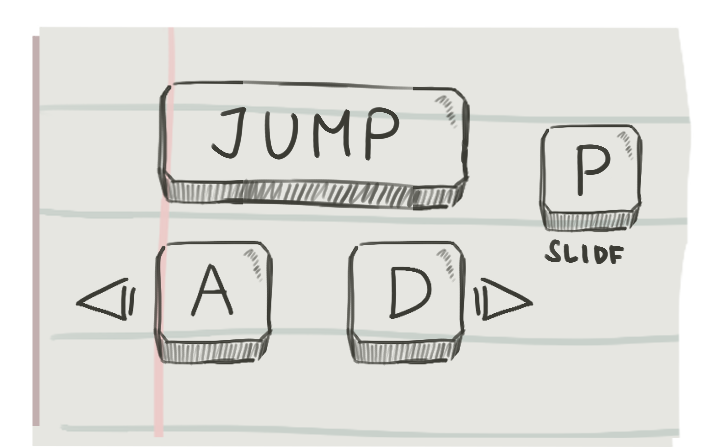 JUMP
P
SLIDF
A D